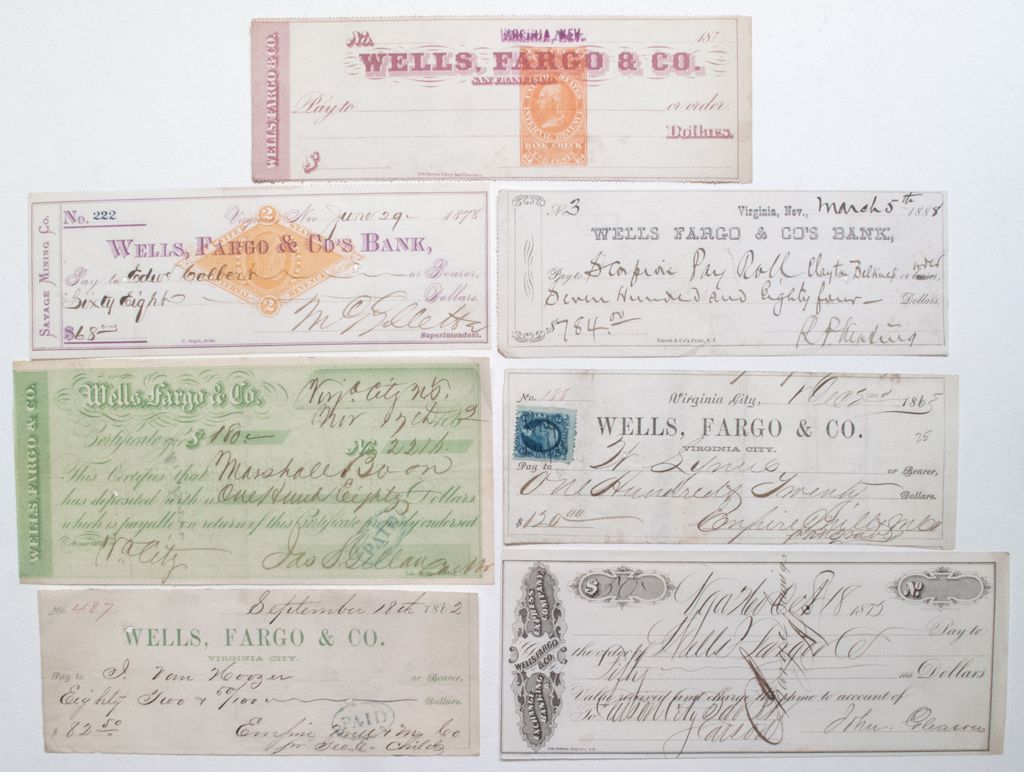 WELLS, FARGO & CO.
No. VIRGINIA, NEV. 187
WELLS, FARGO & CO.
SAN FRANCISCO
UNITED STATES
INTERNAL REVENUE
BANK CHECK
Pay to or order
Dollars
$
SAVAGE MINING CO.
No. 222 Virginia, Nev. June 29 1878
WELLS, FARGO & CO'S BANK,
Pay to Edwd Colbert or Bearer,
Sixty Eight Dollars.
$68
Superintendent.
No. 3 Virginia, Nev., March 5th 1888
WELLS FARGO & CO'S BANK,
Pay to Scorpion Pay Roll Clayton Belknap or order
Seven Hundred and Eighty four Dollars,
$784.00
R. P. Keating
WELLS FARGO & CO.
Wells, Fargo & Co.
Virg City N.T.
Nov 17th 63
Certificate for $ 180 No. 2216
This Certifies that Marshall Boon
has deposited with us One Hund Eighty Dollars
which is payable on return of this Certificate properly endorsed
Va City
PAID
No. 188 Virginia City, Dec 2nd 1865
WELLS, FARGO & CO.
VIRGINIA CITY.
25
Pay to W. or Bearer,
One Hundred & Twenty Dollars.
$120.00 Empire Mill & M Co
No. 487 September 18th 1862
WELLS, FARGO & CO.
VIRGINIA CITY.
Pay to I. Van Hoozer or Bearer,
Eighty Two & 50/100 Dollars.
$82.50 Empire Mill & Mg Co
PAID
for Geo. C. Childs
EXPRESS COMPANY
WELLS FARGO & CO.
EXCHANGE BANKING
$ 50 No.
Oct 18 1875
Pay to
the order of Wells Fargo & Co
Fifty and Dollars
Value received and charge the same to account of
To Carson City
Carson
John Gleason